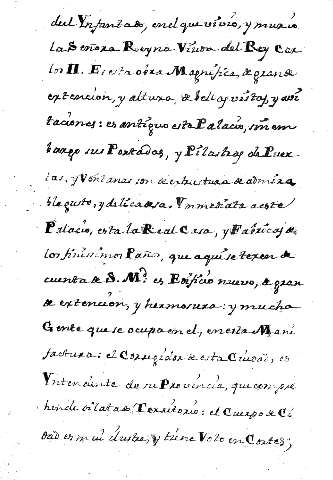 del Ynfantado, en el que vivió, y murió
la Señora Reyna Viuda del Rey Car
los II. Es esta obra Magnifica, de grande
extencion, y altura, de bellas vistas, y avi
taciones: es antiguo este Palacio, sin em
bargo sus Portadas, y Pilastras de Puer
tas, y Ventanas son de estructura de admira
ble gusto, y delicadesa. Ynmediata a este
Palacio, esta la Real Casa, y Fabricas de
los finissimos Paños, que aqui se texen de
cuenta de S. M.d es Edificio nuevo, de gran
de extencion, y hermosura: y mucha
Gente que se ocupa en el, en esta Mani
factura: el Corregidor de esta Ciudad, es
Yntendente de su Provincia, que compre
hende dilatado Territorio: el Cuerpo de Ci
dad es mui ilustre, y tiene Voto en Cortes;